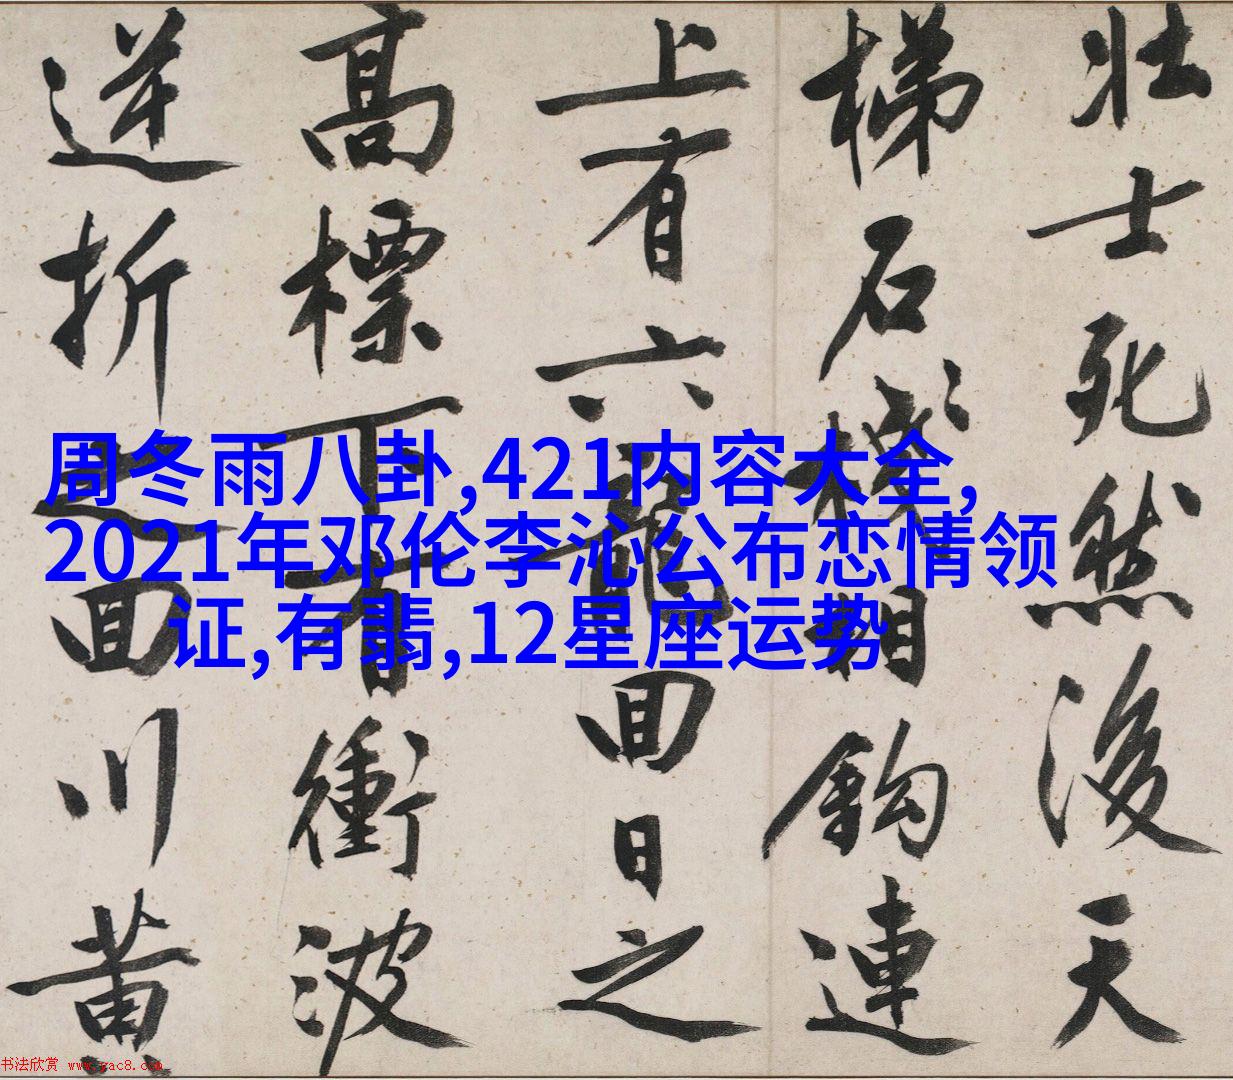 壯士死然後天
梯石機相鈎連
上有六龍回日之
高標下有衝波
逆折之回川黃
周冬雨八卦,421内容大全,
2021年邓伦李沁公布恋情领
证,有翡,12星座运势
书法欣赏 www.yac8.com